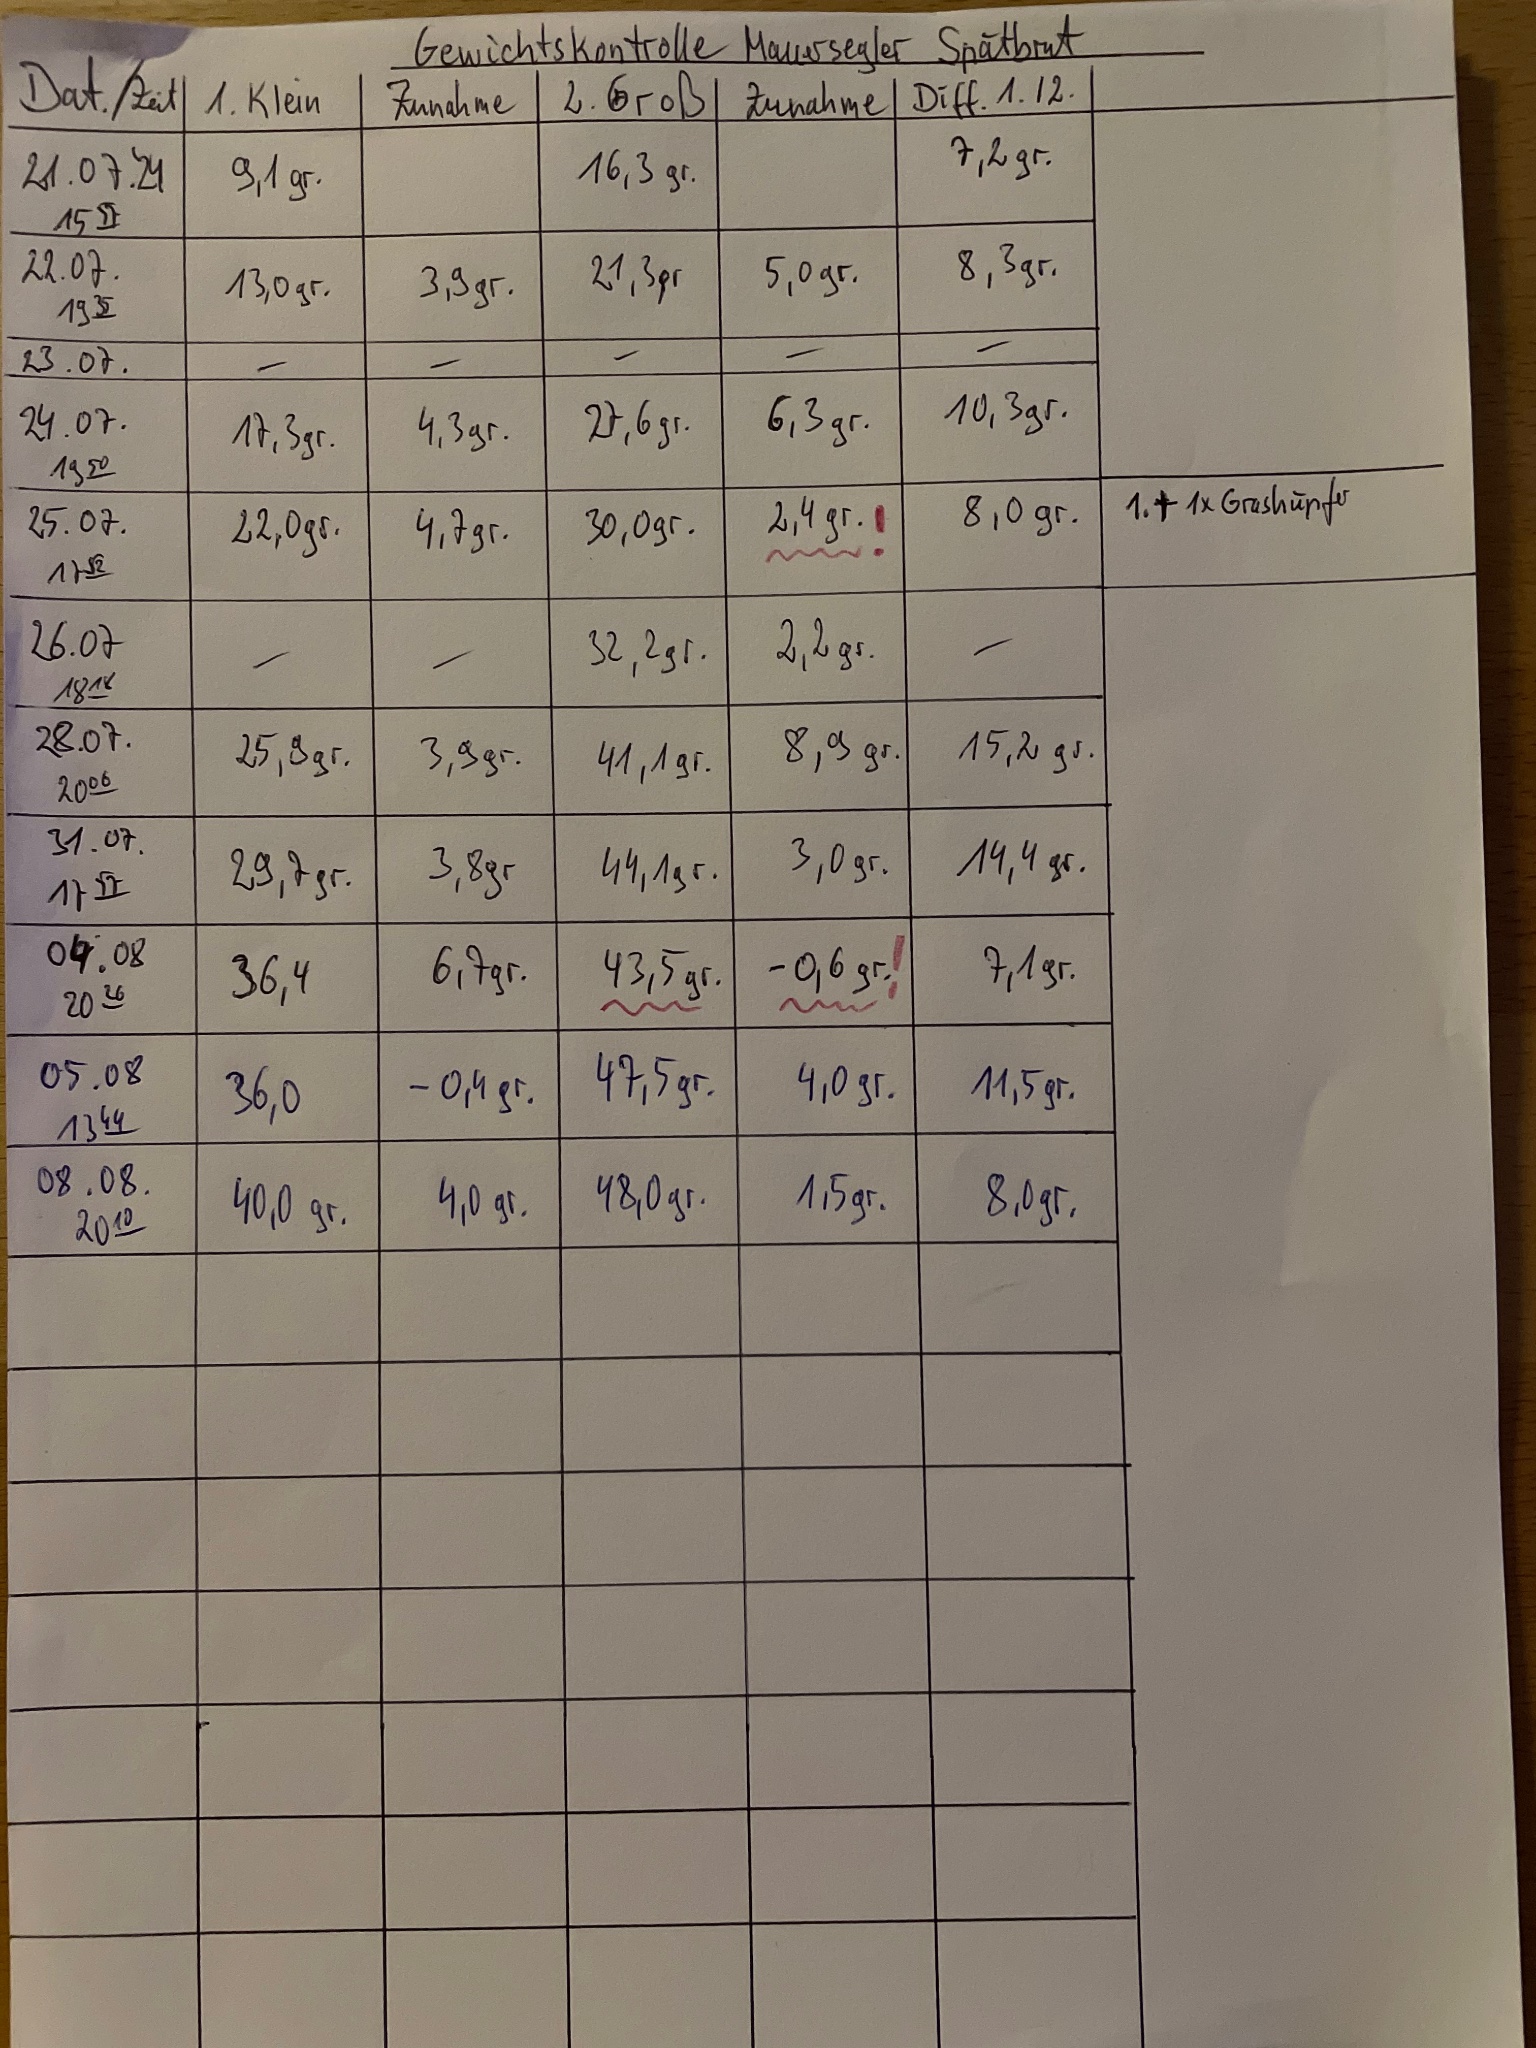 Gewichtskontrolle Mauersegler Spätbrut
Dat./Zeit 1. Klein Zunahme 2. Groß Zunahme Diff. 1./2.
21.07.24 9,1 gr. 16,3 gr. 7,2 gr.
15
22.07. 13,0 gr. 3,9 gr. 21,3 gr 5,0 gr. 8,3 gr.
19
23.07. – – – – –
24.07. 17,3 gr. 4,3 gr. 27,6 gr. 6,3 gr. 10,3 gr.
19 50
25.07. 22,0 gr. 4,7 gr. 30,0 gr. 2,4 gr. ! 8,0 gr. 1. + 1x Grashüpfer
17 52
26.07 – – 32,2 gr. 2,2 gr. –
18 18
28.07. 25,9 gr. 3,9 gr. 41,1 gr. 8,9 gr. 15,2 gr.
20 06
31.07. 29,7 gr. 3,8 gr 44,1 gr. 3,0 gr. 14,4 gr.
17
04.08 36,4 6,7 gr. 43,5 gr. -0,6 gr. ! 7,1 gr.
20 26
05.08 36,0 -0,4 gr. 47,5 gr. 4,0 gr. 11,5 gr.
13 44
08.08. 40,0 gr. 4,0 gr. 48,0 gr. 1,5 gr. 8,0 gr.
20 10